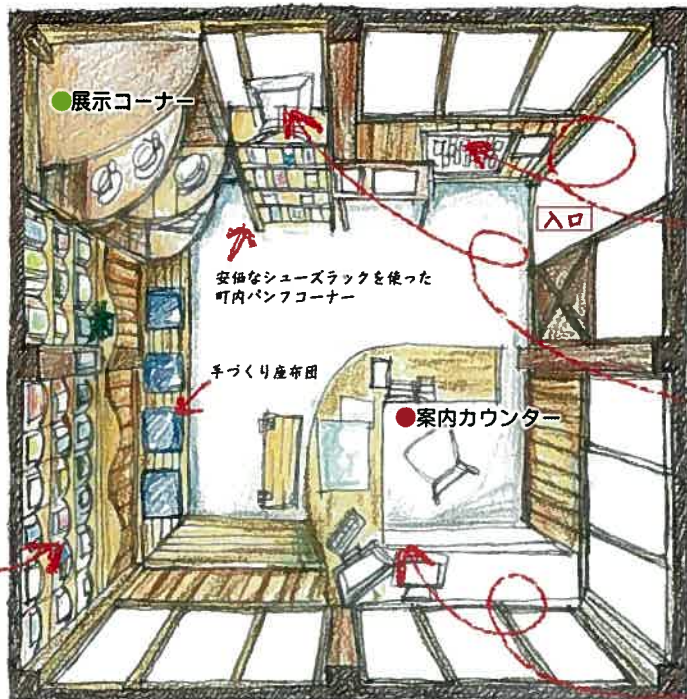 ●展示コーナー
入口
安価なシューズラックを使った
町内パンフコーナー
手づくり座布団
●案内カウンター